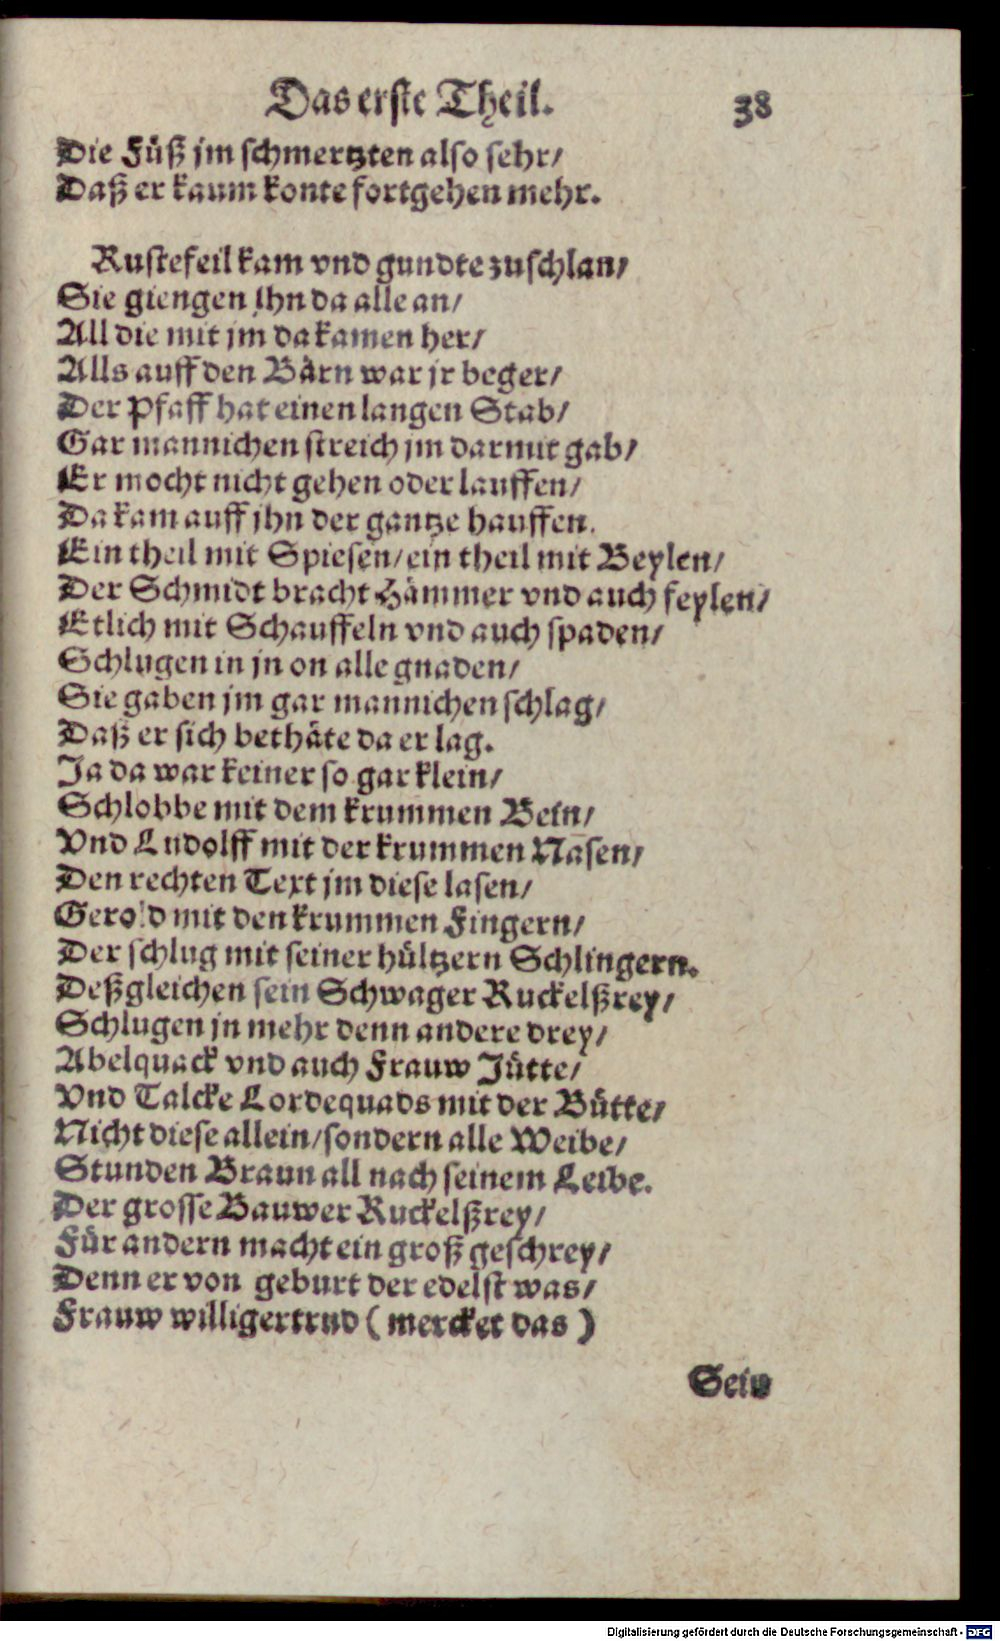 Das erste Theil. 38
Die Füß jm schmertzten also sehr/
Daß er kaum konte fortgehen mehr.
Rustefeil kam vnd gundte zuschlan/
Sie giengen jhn da alle an/
All die mit jm da kamen her/
Alls auff den Bärn war jr beger/
Der Pfaff hat einen langen Stab/
Gar mannichen streich jm darmit gab/
Er mocht nicht gehen oder lauffen/
Da kam auff jhn der gantze hauffen.
Ein theil mit Spiesen/ ein theil mit Beylen/
Der Schmidt bracht Hämmer vnd auch feylen/
Etlich mit Schauffeln vnd auch spaden/
Schlugen in jn on alle gnaden/
Sie gaben jm gar mannichen schlag/
Daß er sich bethäte da er lag.
Ja da war keiner so gar klein/
Schlobbe mit dem krummen Bein/
Vnd Ludolff mit der krummen Nasen/
Den rechten Text jm diese lasen/
Gerold mit den krummen Fingern/
Der schlug mit seiner hültzern Schlingern.
Deßgleichen sein Schwager Ruckelßrey/
Schlugen jn mehr denn andere drey/
Abelquack vnd auch Frauw Jütte/
Vnd Talcke Lordequads mit der Bütte/
Nicht diese allein/ sondern alle Weibe/
Stunden Braun all nach seinem Leibe.
Der grosse Bauwer Ruckelßrey/
Für andern macht ein groß geschrey/
Denn er von geburt der edelst was/
Frauw willigertrud ( mercket das )
Sein
Digitalisierung gefördert durch die Deutsche Forschungsgemeinschaft - DFG